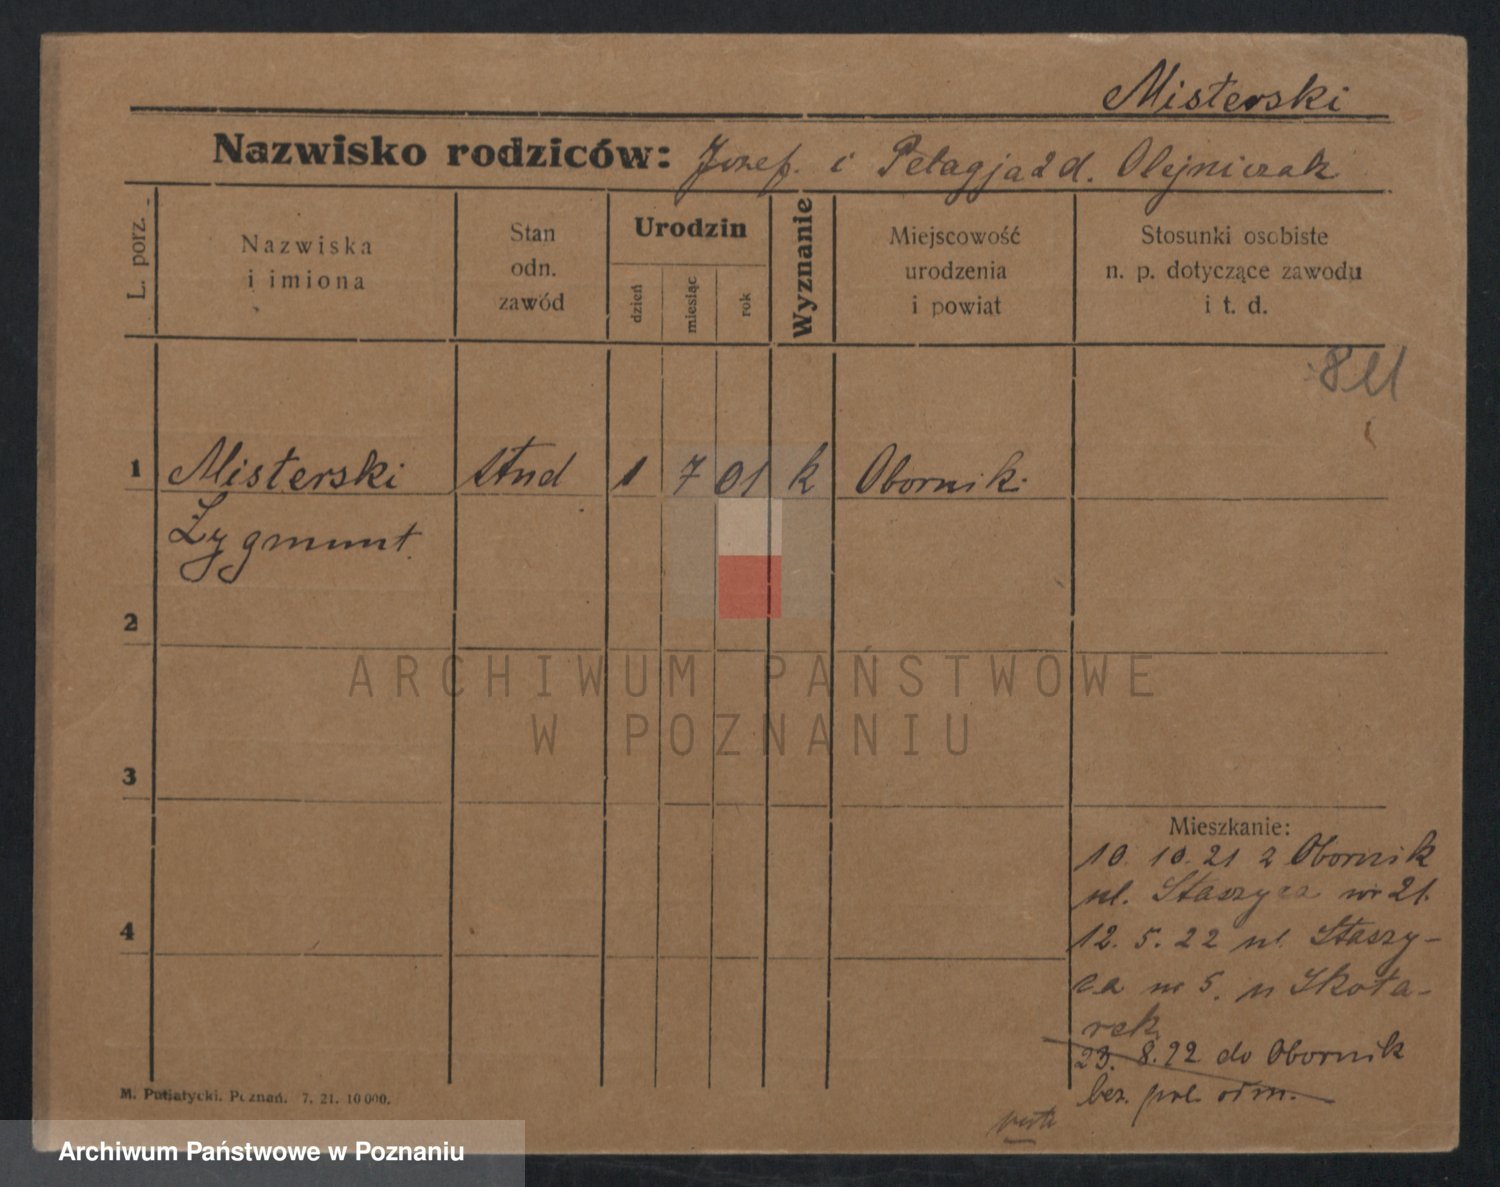 Misterski
Nazwisko rodziców: Jozef. i Pelagja z d. Olejniczak
L. porz.
Nazwiska
i imiona
Stan
odn.
zawód
Urodzin
dzień
miesiąc
rok
Wyznanie
Miejscowość
urodzenia
i powiat
Stosunki osobiste
n. p. dotyczące zawodu
i t. d.
1 Misterski stud 1 7 01 k Obornik.
Zygmunt
2
3
4
Mieszkanie:
10. 10. 21 z Obornik
ul. Staszyca nr 21.
12. 5. 22 ul. Staszy-
ca nr 5. u Skota-
rek
23. 8. 22 do Obornik
bez. pol. odm.
M. Putiatycki. Poznań. 7. 21. 10 000.
ARCHIWUM PAŃSTWOWE
W POZNANIU
Archiwum Państwowe w Poznaniu